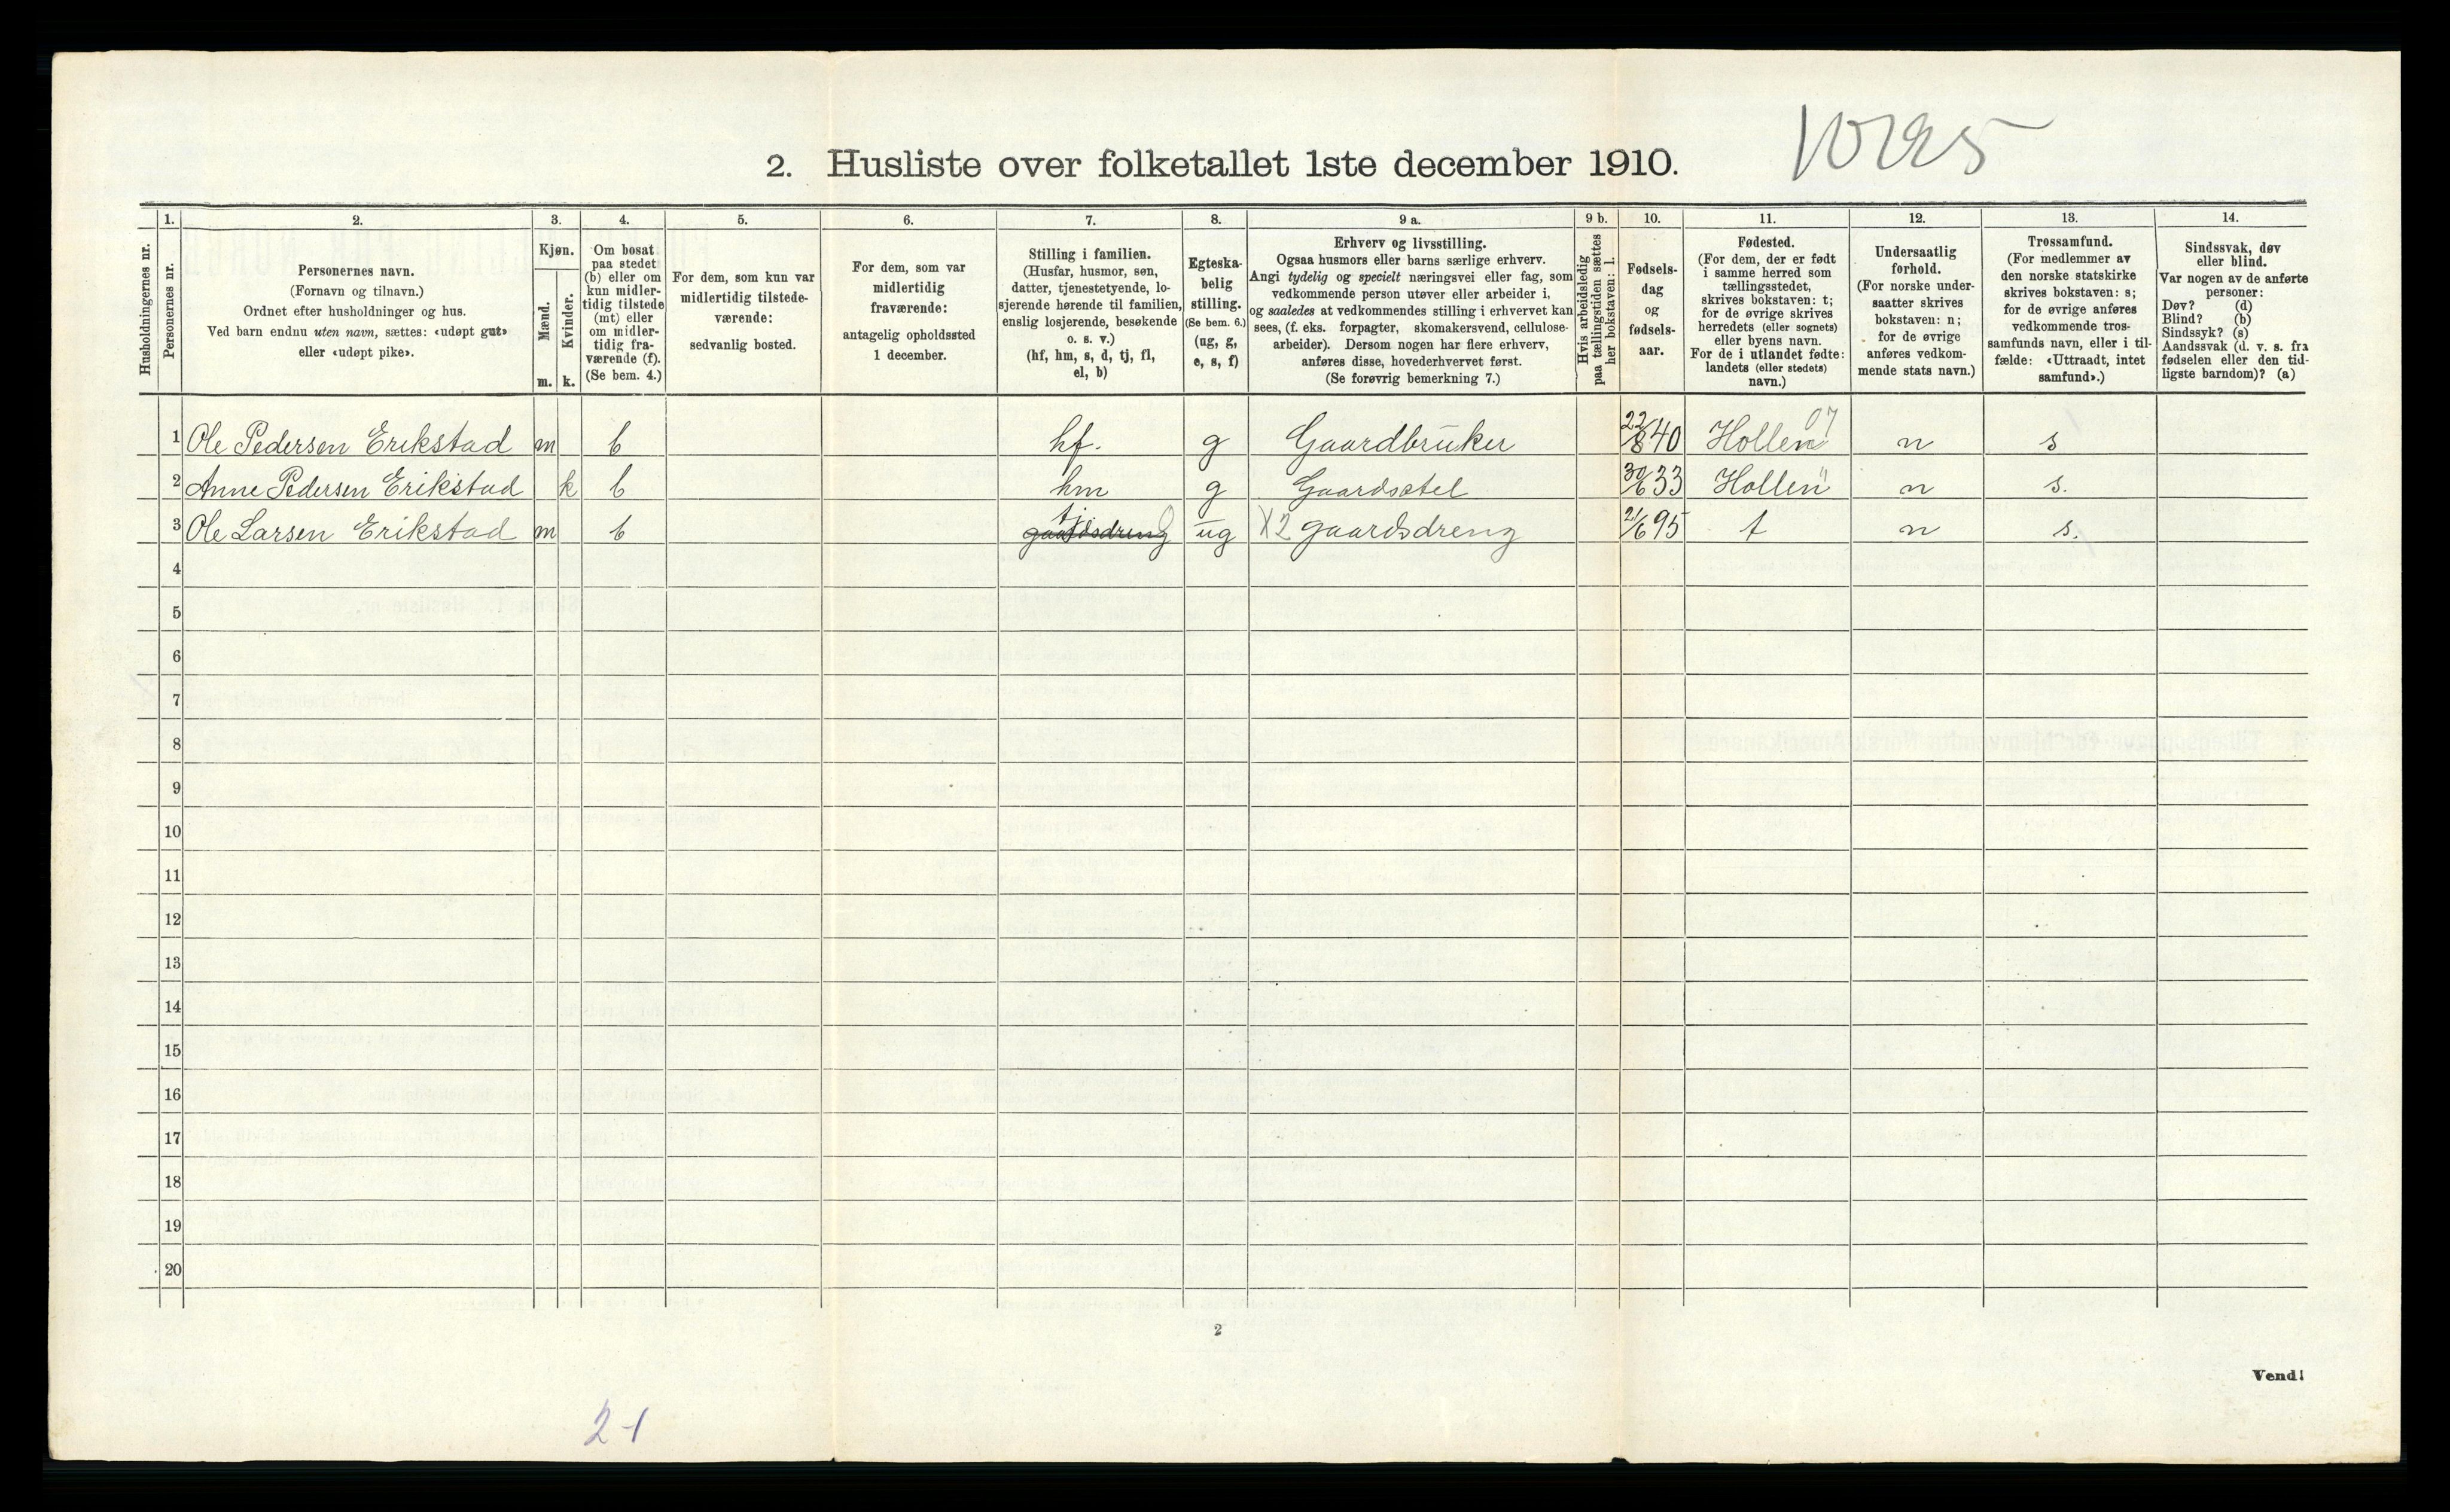 2. Husliste over folketallet 1ste december 1910.
Husholdningernes nr.
1.
Personernes nr.
2.
Personernes navn.
(Fornavn og tilnavn.)
Ordnet efter husholdninger og hus.
Ved barn endnu uten navn, sættes: «udøpt gut»
eller «udøpt pike».
3.
Kjøn.
Mænd.
Kvinder.
m. k.
4.
Om bosat
paa stedet
(b) eller om
kun midler-
tidig tilstede
(mt) eller
om midler-
tidig fra-
værende (f).
(Se bem. 4.)
5.
For dem, som kun var
midlertidig tilstede-
værende:
sedvanlig bosted.
6.
For dem, som var
midlertidig
fraværende:
antagelig opholdssted
1 december.
7.
Stilling i familien.
(Husfar, husmor, søn,
datter, tjenestetyende, lo-
sjerende hørende til familien,
enslig losjerende, besøkende
o. s. v.)
(hf, hm, s, d, tj, fl,
el, b)
8.
Egteska-
belig
stilling.
(Se bem. 6.)
(ug, g,
e, s, f)
9 a.
Erhverv og livsstilling.
Ogsaa husmors eller barns særlige erhverv.
Angi tydelig og specielt næringsvei eller fag, som
vedkommende person utøver eller arbeider i,
og saaledes at vedkommendes stilling i erhvervet kan
sees, (f. eks. forpagter, skomakersvend, cellulose-
arbeider). Dersom nogen har flere erhverv,
anføres disse, hovederhvervet først.
(Se forøvrig bemerkning 7.)
9 b.
Hvis arbeidsledig
paa tællingstiden sættes
her bokstaven: l.
10.
Fødsels-
dag
og
fødsels-
aar.
11.
Fødested.
(For dem, der er født
i samme herred som
tællingsstedet,
skrives bokstaven: t;
for de øvrige skrives
herredets (eller sognets)
eller byens navn.
For de i utlandet fødte:
landets (eller stedets)
navn.)
12.
Undersaatlig
forhold.
(For norske under-
saatter skrives
bokstaven: n;
for de øvrige
anføres vedkom-
mende stats navn.)
13.
Trossamfund.
(For medlemmer av
den norske statskirke
skrives bokstaven: s;
for de øvrige anføres
vedkommende tros-
samfunds navn, eller i til-
fælde: «Uttraadt, intet
samfund».)
14.
Sindssvak, døv
eller blind.
Var nogen av de anførte
personer:
Døv? (d)
Blind? (b)
Sindssyk? (s)
Aandssvak (d. v. s. fra
fødselen eller den tid-
ligste barndom)? (a)
1 Ole Pedersen Erikstad m b hf. g Gaardbruker 22/8 40 Hollen 07 n s
2 Anne Pedersen Erikstad k b hm g Gaardsstel 30/6 33 Hollen " n s.
3 Ole Larsen Erikstad m b gaardsdreng tj ug X2 gaardsdreng 21/6 95 t n s.
4
5
6
7
8
9
10
11
12
13
14
15
16
17
18
19
20
2
Vend!
2-1